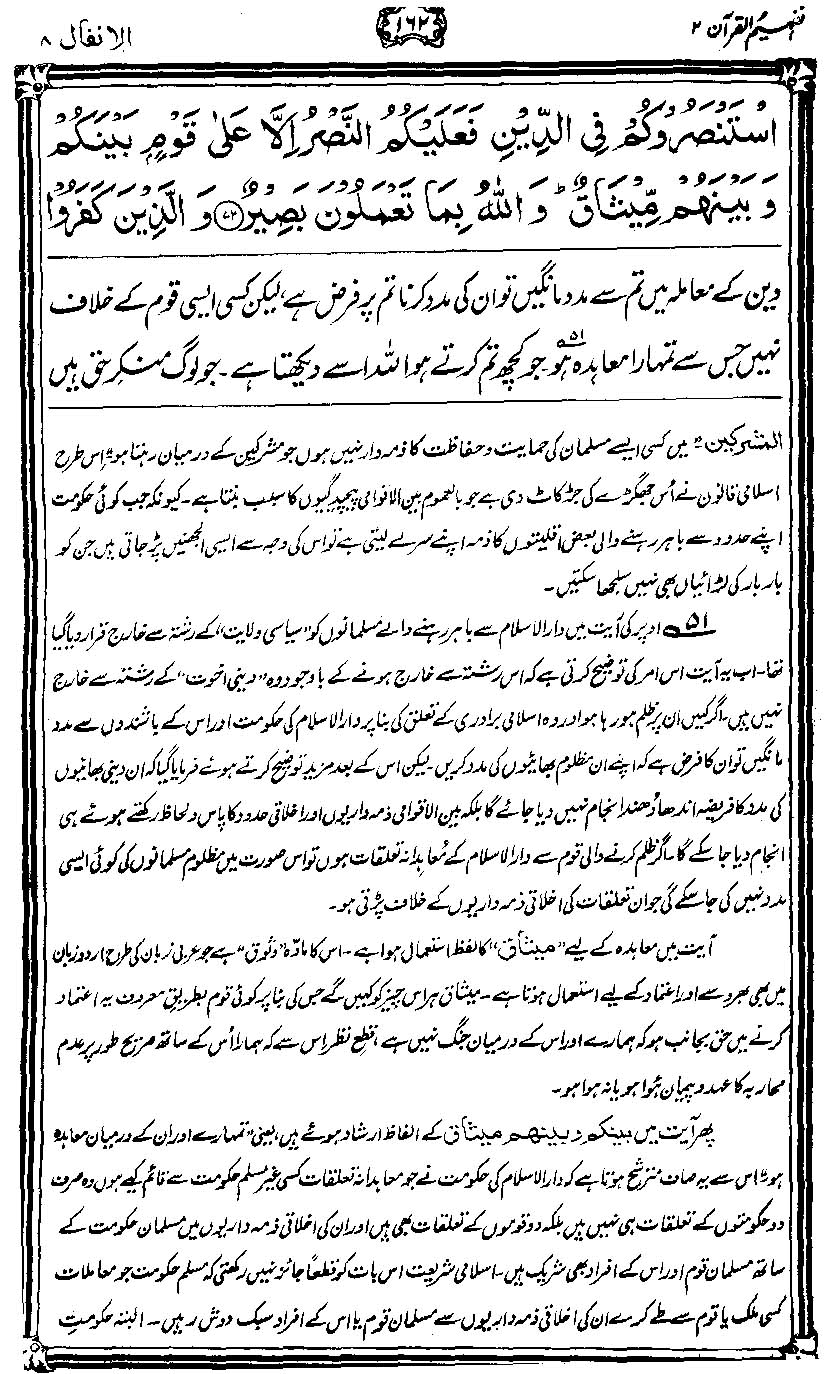 تفہیم القرآن ۲
۱۶۲
الانفال ۸
اسْتَنْصَرُوْكُمْ فِي الدِّيْنِ فَعَلَيْكُمُ النَّصْرُ اِلَّا عَلٰى قَوْمٍۭ بَيْنَكُمْ
وَبَيْنَهُمْ مِّيْثَاقٌ ؕ وَاللّٰهُ بِمَا تَعْمَلُوْنَ بَصِيْرٌ ﴿۷۲﴾ وَالَّذِيْنَ كَفَرُوْا
دین کے معاملہ میں تم سے مدد مانگیں تو ان کی مدد کرنا تم پر فرض ہے، لیکن کسی ایسی قوم کے خلاف
نہیں جس سے تمہارا معاہدہ ہو ۵۱۔ جو کچھ تم کرتے ہو اللہ اسے دیکھتا ہے۔ جو لوگ منکرِ حق ہیں
المشرکین۔" میں کسی ایسے مسلمان کی حمایت و حفاظت کا ذمہ دار نہیں ہوں جو مشرکین کے درمیان رہتا ہو" اس طرح
اسلامی قانون نے اُس جھگڑے کی جڑ کاٹ دی ہے جو بالعموم بین الاقوامی پیچیدگیوں کا سبب بنتا ہے۔ کیونکہ جب کوئی حکومت
اپنے حدود سے باہر رہنے والی بعض اقلیتوں کا ذمہ اپنے سر لے لیتی ہے تو اس کی وجہ سے ایسی الجھنیں پڑ جاتی ہیں جن کو
بار بار کی لڑائیاں بھی نہیں سلجھا سکتیں۔
۵۱ اوپر کی آیت میں دارالاسلام سے باہر رہنے والے مسلمانوں کو "سیاسی ولایت" کے رشتہ سے خارج قرار دیا گیا
تھا۔ اب یہ آیت اس امر کی توضیح کرتی ہے کہ اس رشتہ سے خارج ہونے کے باوجود وہ "دینی اخوت" کے رشتہ سے خارج
نہیں ہیں۔ اگر کہیں ان پر ظلم ہو رہا ہو اور وہ اسلامی برادری کے تعلق کی بنا پر دارالاسلام کی حکومت اور اس کے باشندوں سے مدد
مانگیں تو ان کا فرض ہے کہ اپنے ان مظلوم بھائیوں کی مدد کریں۔ لیکن اس کے بعد مزید توضیح کرتے ہوئے فرمایا گیا کہ ان دینی بھائیوں
کی مدد کا فریضہ اندھا دُھند انجام نہیں دیا جائے گا بلکہ بین الاقوامی ذمہ داریوں اور اخلاقی حدود کا پاس و لحاظ رکھتے ہوئے ہی
انجام دیا جا سکے گا۔ اگر ظلم کرنے والی قوم سے دارالاسلام کے مُعاہدانہ تعلقات ہوں تو اس صورت میں مظلوم مسلمانوں کی کوئی ایسی
مدد نہیں کی جا سکے گی جو ان تعلقات کی اخلاقی ذمہ داریوں کے خلاف پڑتی ہو۔
آیت میں معاہدہ کے لیے "میثاق" کا لفظ استعمال ہوا ہے۔ اس کا مادّہ "وثوق" ہے جو عربی زبان کی طرح اردو زبان
میں بھی بھروسے اور اعتماد کے لیے استعمال ہوتا ہے۔ میثاق ہر اس چیز کو کہیں گے جس کی بنا پر کوئی قوم بطریق معروف یہ اعتماد
کرنے میں حق بجانب ہو کہ ہمارے اور اس کے درمیان جنگ نہیں ہے، قطع نظر اس سے کہ ہمارا اُس کے ساتھ صریح طور پر عدم
محاربہ کا عہد و پیمان ہُوا ہو یا نہ ہوا ہو۔
پھر آیت میں بینکم و بینھم میثاق کے الفاظ ارشاد ہوئے ہیں، یعنی "تمہارے اور ان کے درمیان معاہدہ
ہو" اس سے یہ صاف مترشح ہوتا ہے کہ دارالاسلام کی حکومت نے جو معاہدانہ تعلقات کسی غیر مسلم حکومت سے قائم کیے ہوں وہ صرف
دو حکومتوں کے تعلقات ہی نہیں ہیں بلکہ دو قوموں کے تعلقات بھی ہیں اور ان کی اخلاقی ذمہ داریوں میں مسلمان حکومت کے
ساتھ مسلمان قوم اور اس کے افراد بھی شریک ہیں۔ اسلامی شریعت اس بات کو قطعاً جائز نہیں رکھتی کہ مسلم حکومت جو معاملات
کسی ملک یا قوم سے طے کرے ان کی اخلاقی ذمہ داریوں سے مسلمان قوم یا اس کے افراد سبک دوش رہیں۔ البتہ حکومتِ